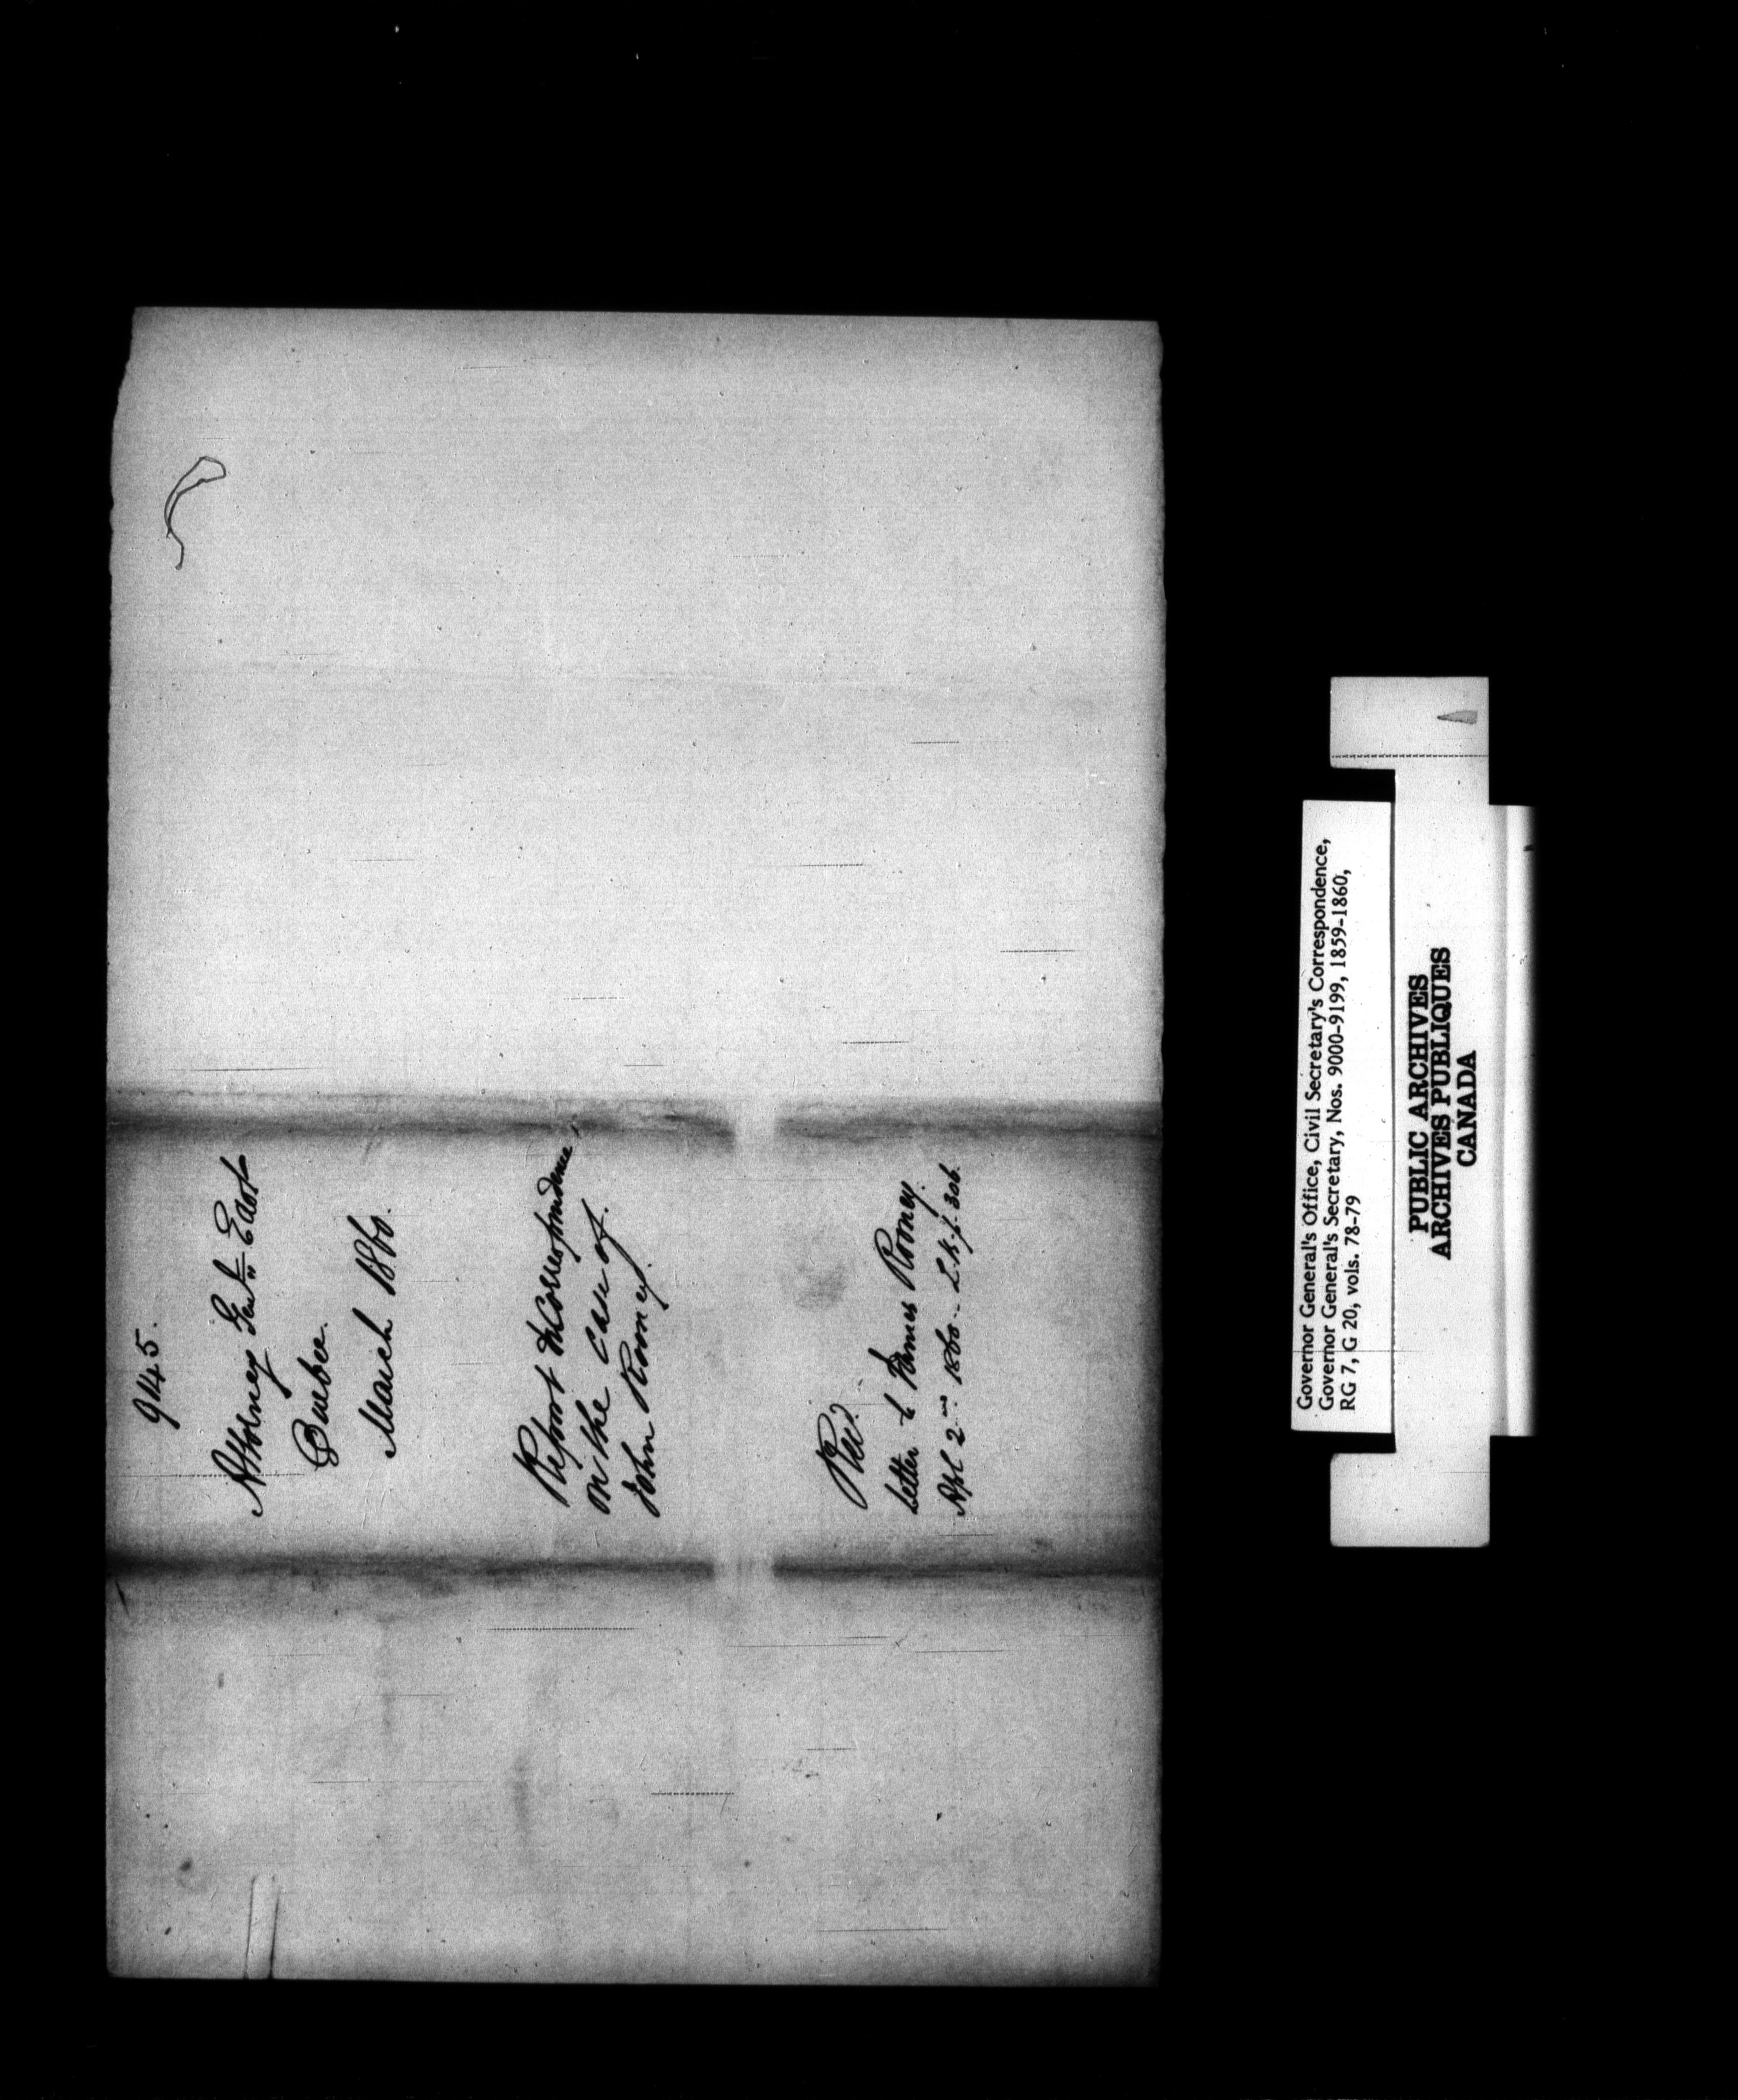 9145.
Attorney Genl East
Quebec.
March 1860.
Report & Correspondence,
on the case of
John Rooney.
Letter to James Rooney.
Apl 2nd 1860 - L.B. p. 306.
Governor General's Office, Civil Secretary's Correspondence,
Governor General's Secretary, Nos. 9000-9199, 1859-1860,
RG 7, G 20, vols. 78-79
PUBLIC ARCHIVES
ARCHIVES PUBLIQUES
CANADA